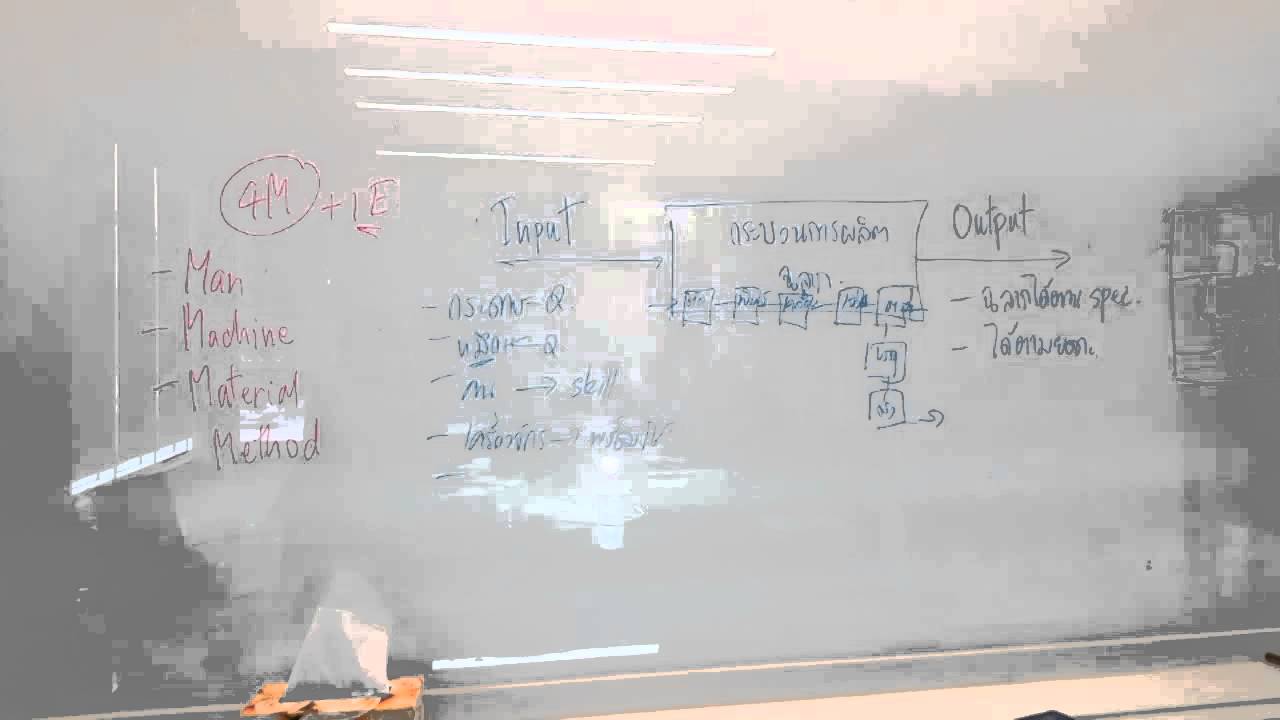 4M + 1E
- Man
- Machine
- Material
Method
Input
- กระดาษ - Q
- หมึก - Q
- คน → skill
- เครื่องจักร - พร้อมใช้
กระบวนการผลิต
ฉลาก
พิมพ์
Output
- ฉลากได้ตาม spec.
- ได้ตามยอด